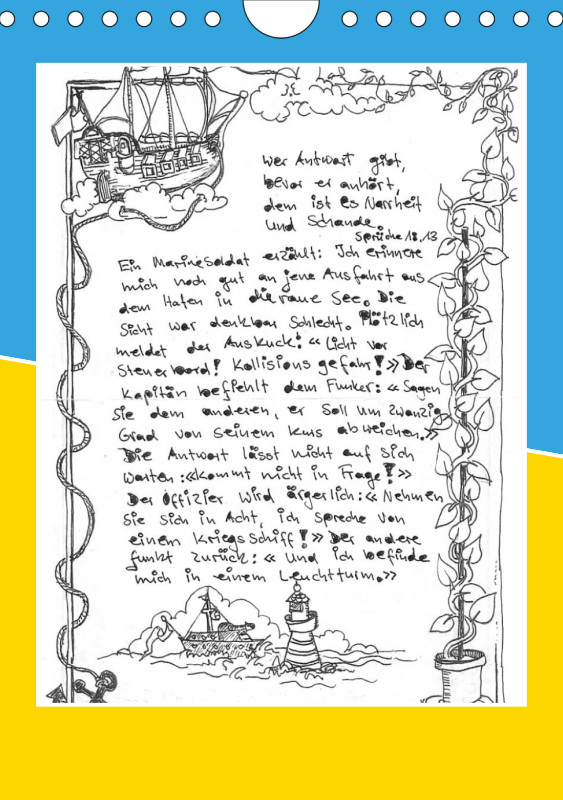 Wer Antwort gibt,
bevor er anhört,
dem ist es Narrheit
und Schande.
Sprüche 18,13
Ein Marinesoldat erzählt: Ich erinnere
mich noch gut an jene Ausfahrt aus
dem Hafen in die raue See. Die
Sicht war denkbar schlecht. Plötzlich
meldet der Auskuck: «Licht vor
Steuerbord! Kollisionsgefahr!» Der
Kapitän befiehlt dem Funker: «Sagen
Sie dem anderen, er soll um zwanzig
Grad von seinem Kurs abweichen.»
Die Antwort lässt nicht auf sich
warten: «Kommt nicht in Frage!»
Der Offizier wird ärgerlich: «Nehmen
Sie sich in Acht, ich spreche von
einem Kriegsschiff!» Der andere
funkt zurück: «Und ich befinde
mich in einem Leuchtturm.»